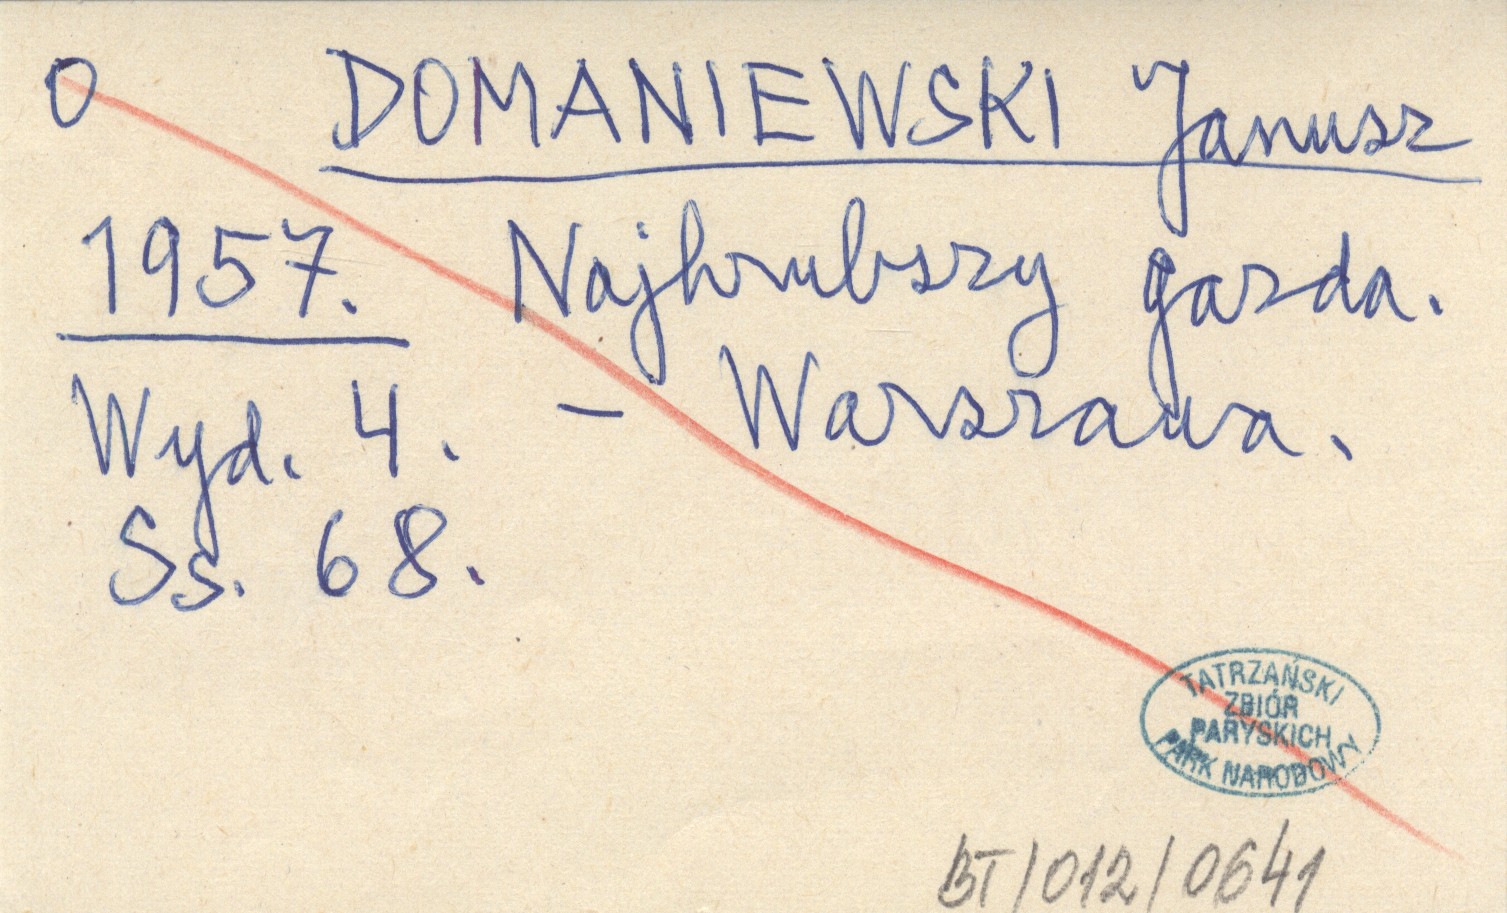 O DOMANIEWSKI Janusz
1957. Najhrubszy gazda.
Wyd. 4. – Warszawa.
Ss. 68.
TATRZAŃSKI
ZBIÓR
PARYSKICH
PARK NARODOWY
BT/012/0641